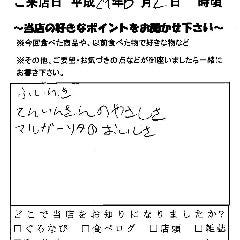 ご来店日 平成29年6月2日 時頃
～当店の好きなポイントをお聞かせ下さい～
※今回食べた商品や、以前食べた物で好きな物など
※その他、ご要望・お気づきの点などが御座いましたら一緒に
お書き下さい。
ふんいき
てんいんさんのやさしさ
マルガリータのおいしさ
どこで当店をお知りになりましたか?
□ぐるなび □食べログ □店頭 □雑誌